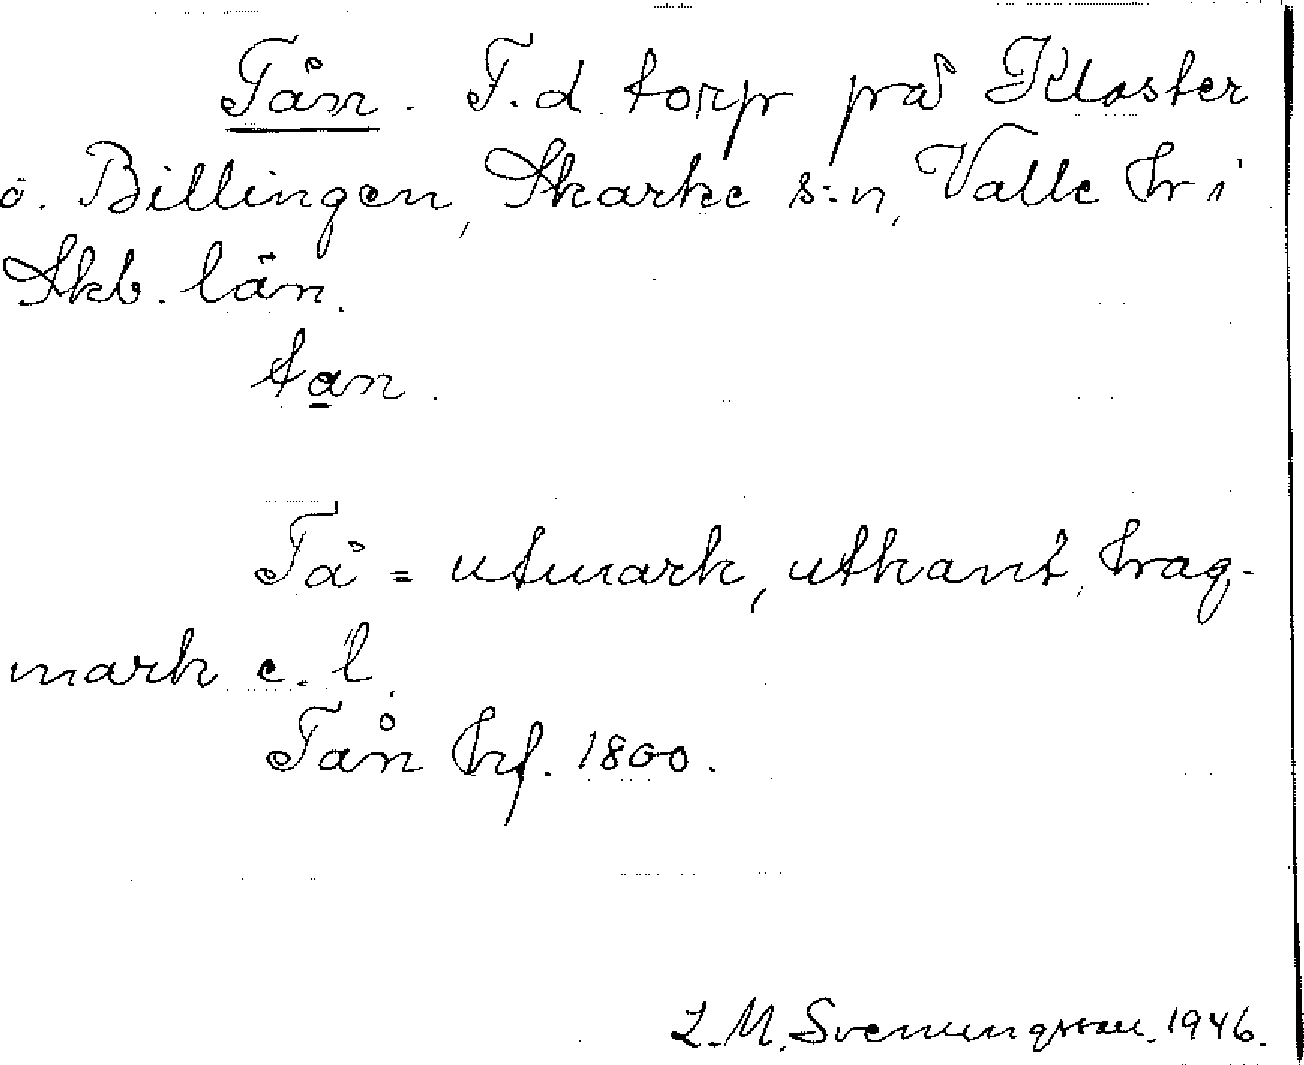 Tån. F.d. torp på Kloster
ö. Billingen, Skarke s:n, Valle hr i
Skb. län.
tan.
Tå = utmark, utkant, hag-
mark e. l.
Tån hrf. 1800.
L. M. Svenungsson. 1946.